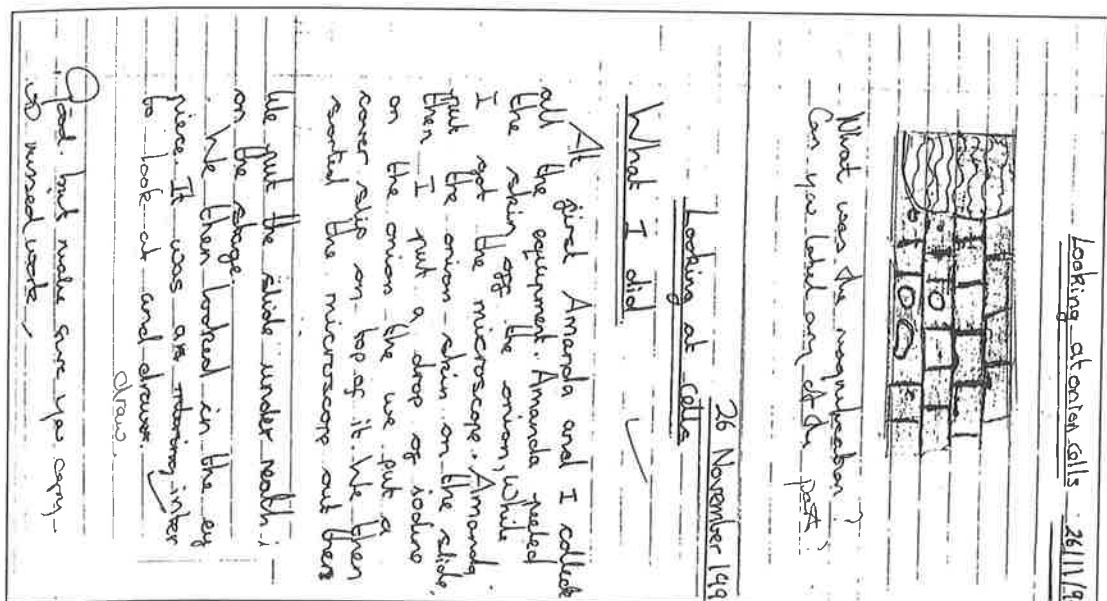 Looking at onion cells 26/11/9
What was the magnification?
Can you label any of the parts?
26 November 199
Looking at cells
What I did
At first Amanda and I collecte
all the equipment. Amanda peeled
the skin off the onion, while
I got the microscope. Amanda
put the onion skin on the slide.
then I put a drop of iodine
on the onion the we put a
cover slip on top of it. We then
sorted the microscope out then
We put the slide under neath
on the stage.
We then looked in the ey
piece. It was intersin
to look at and drawer.
draw
Good. but make sure you copy
up missed work